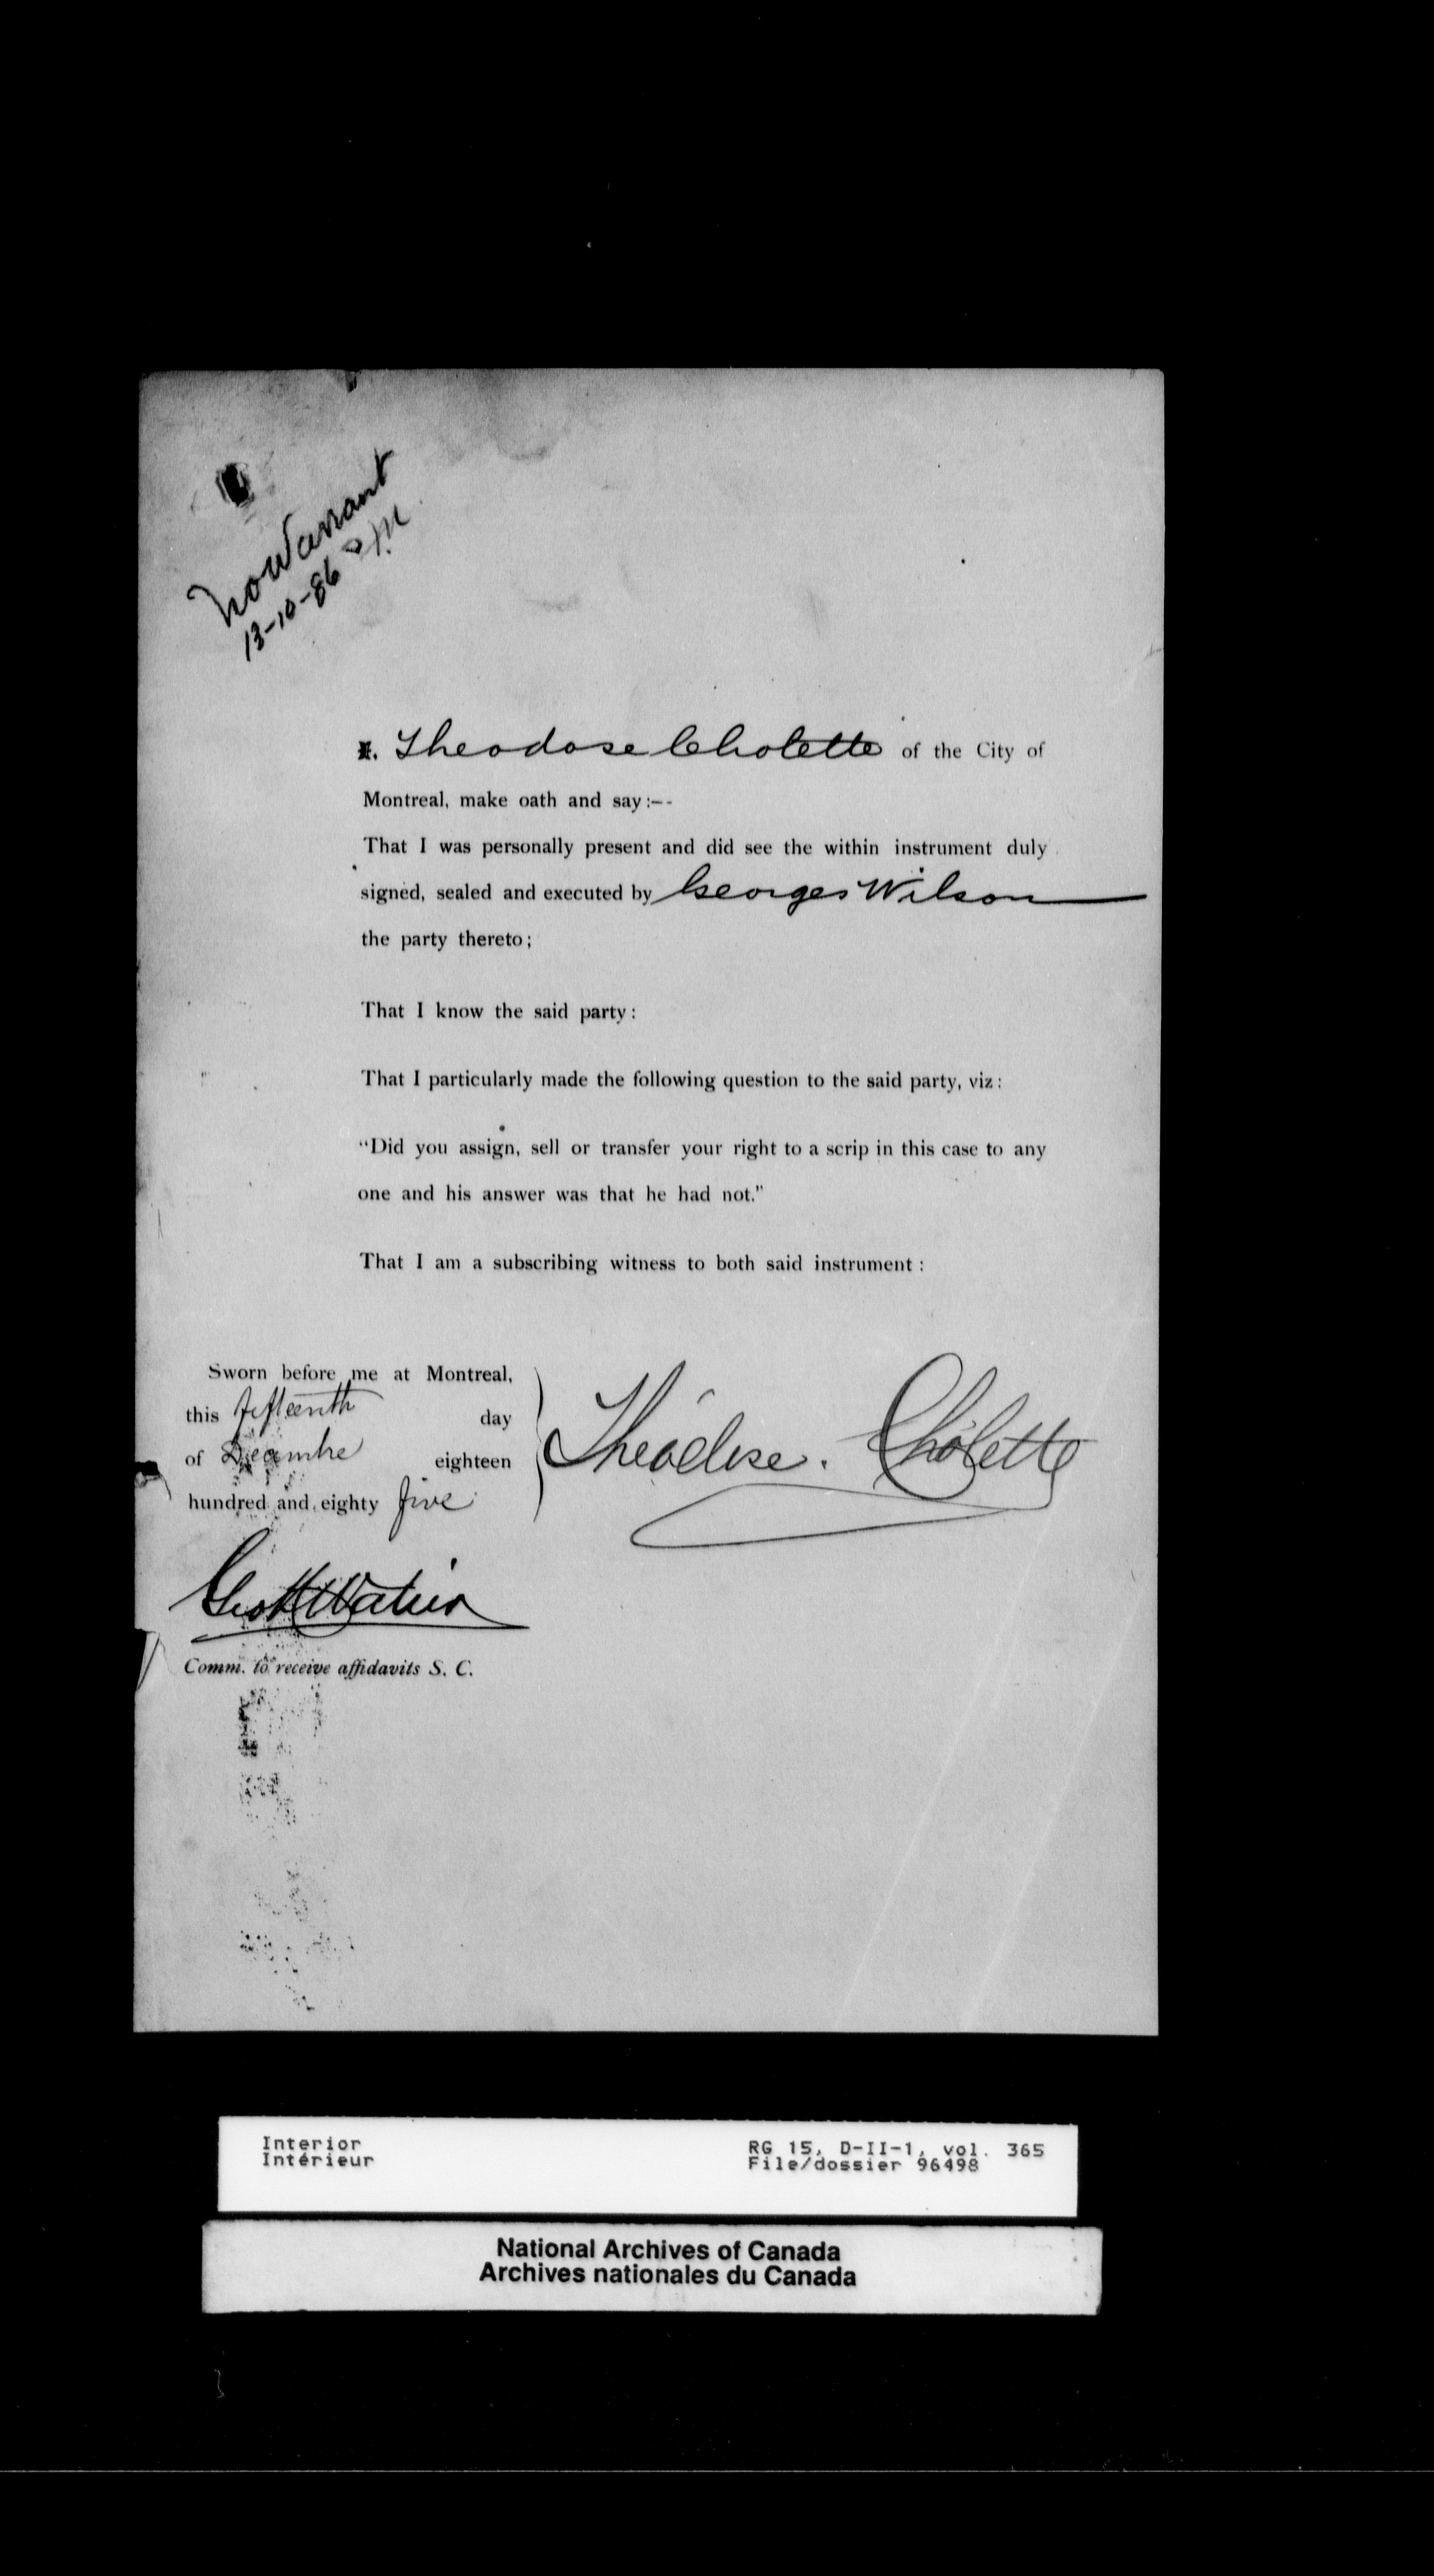 No Warrant
13-10-86
I, Theodose Cholette of the City of
Montreal, make oath and say:--
That I was personally present and did see the within instrument duly
signed, sealed and executed by Georges Wilson
the party thereto;
That I know the said party:
That I particularly made the following question to the said party, viz:
"Did you assign, sell or transfer your right to a scrip in this case to any
one and his answer was that he had not."
That I am a subscribing witness to both said instrument:
Sworn before me at Montreal,
this fifteenth day
of Decembre eighteen
hundred and eighty five
Théodose. Cholette
Comm. to receive affidavits S. C.
Interior
Intérieur
RG 15, D-II-1, vol. 365
File/dossier 96498
National Archives of Canada
Archives nationales du Canada